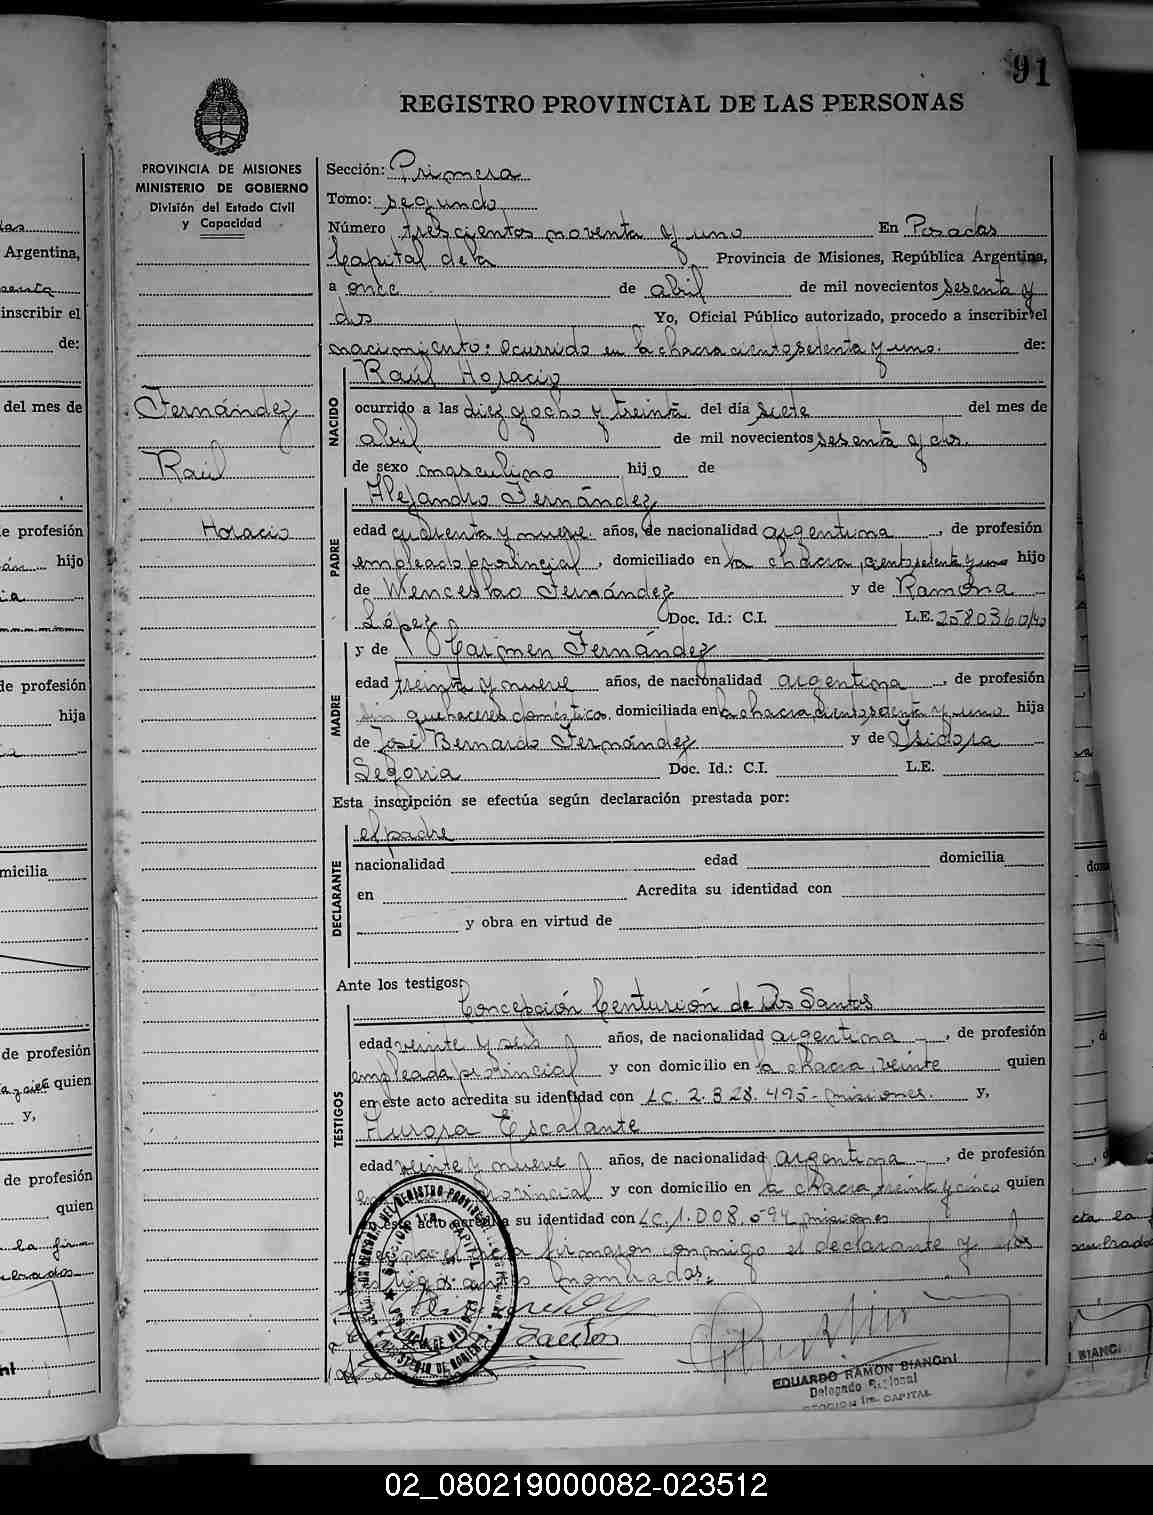 91
REGISTRO PROVINCIAL DE LAS PERSONAS
PROVINCIA DE MISIONES
MINISTERIO DE GOBIERNO
División del Estado Civil
y Capacidad
Sección: Primera
Tomo: segundo
Número trescientos noventa y uno En Posadas
Capital de la Provincia de Misiones, República Argentina,
a once de abril de mil novecientos sesenta y
dos Yo, Oficial Público autorizado, procedo a inscribir el
nacimiento: Ocurrido en la chacra ciento setenta y uno. de:
Fernández
Raúl
Horacio
NACIDO
Raúl Horacio
ocurrido a las diez y ocho y treinta del día siete del mes de
abril de mil novecientos sesenta y dos.
de sexo masculino hijo de
PADRE
Alejandro Fernández
edad cuarenta y nueve años, de nacionalidad argentina, de profesión
empleado provincial, domiciliado en la chacra ciento setenta y uno hijo
de Wenceslao Fernández y de Ramona
López Doc. Id.: C.I. L.E. 2580360/40
MADRE
y de Carmen Fernández
edad treinta y nueve años, de nacionalidad argentina, de profesión
sin quehaceres domésticos, domiciliada en la chacra ciento setenta y uno hija
de José Bernardo Fernández y de Isidora
Segovia Doc. Id.: C.I. L.E.
Esta inscripción se efectúa según declaración prestada por:
DECLARANTE
el padre
nacionalidad edad domicilia
en Acredita su identidad con
y obra en virtud de
Ante los testigos:
TESTIGOS
Concepción Centurión de Dos Santos
edad veinte y seis años, de nacionalidad argentina, de profesión
empleada provincial y con domicilio en la chacra veinte quien
en este acto acredita su identidad con LC. 2.328.495- misiones. y,
Aurora Escalante
edad veinte y nueve años, de nacionalidad argentina, de profesión
provincial y con domicilio en la chacra treinta y cinco quien
este acto acredita su identidad con LC. 1.008.594 misiones
firmaron conmigo el declarante y los
nombrados.
Santos
EDUARDO RAMON BIANCHI
Delegado Regional
SECCION 1ra. CAPITAL
Argentina,
inscribir el
de:
del mes de
de profesión
hijo
de profesión
hija
micilia
de profesión
quien
y,
de profesión
quien
02_080219000082-023512